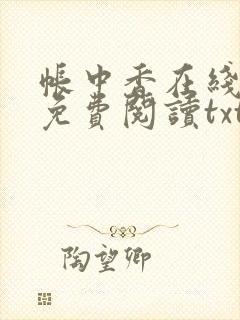 帳中香在綫
免費閱讀txt
陶望卿